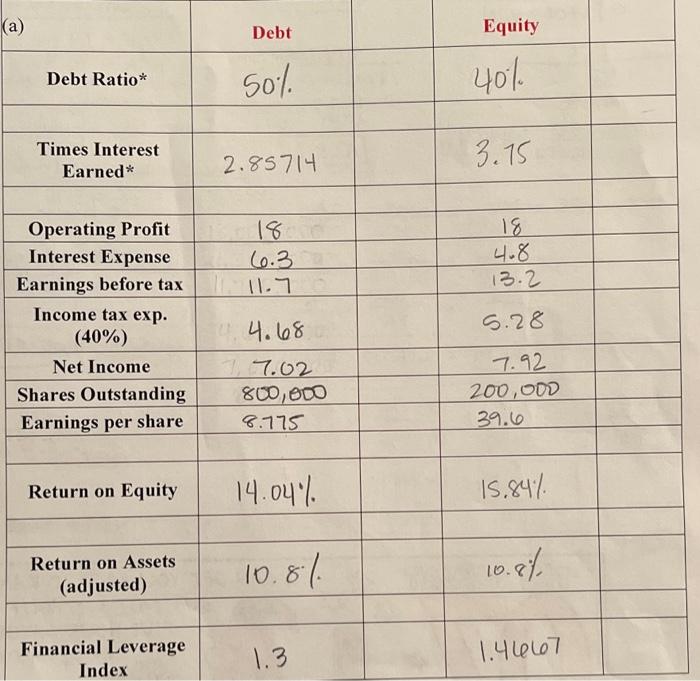 (a) Debt Equity
Debt Ratio* 50% 40%
Times Interest
Earned* 2.85714 3.75
Operating Profit 18 18
Interest Expense 6.3 4.8
Earnings before tax 11.7 13.2
Income tax exp.
(40%) 4.68 5.28
Net Income 7.02 7.92
Shares Outstanding 800,000 200,000
Earnings per share 8.775 39.6
Return on Equity 14.04% 15.84%
Return on Assets
(adjusted) 10.8% 10.8%
Financial Leverage
Index 1.3 1.4667